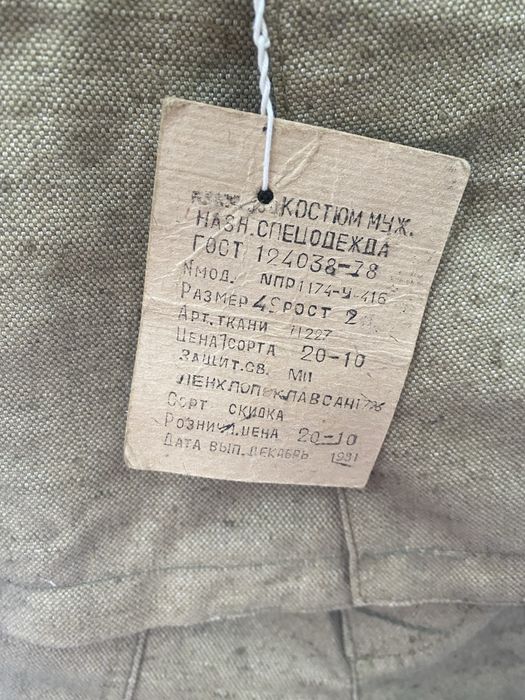 КОСТЮМ МУЖ.
НАЗН. СПЕЦОДЕЖДА
ГОСТ 124038-78
N МОД. NПР1174-У-416
РАЗМЕР РОСТ 2
АРТ. ТКАНИ 11227
ЦЕНА 1 СОРТА 20-10
ЗАЩИТ. СВ. МП
СОРТ СКИДКА
РОЗНИЧ. ЦЕНА 20-10
ДАТА ВЫП. ДЕКАБРЬ 1991